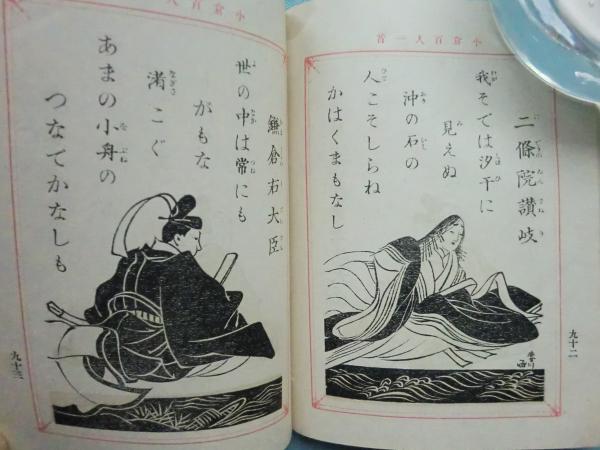 小倉百人一首
二條院讃岐
我そでは汐干に
見えぬ
沖の石の
人こそしらね
かはくまもなし
九十二
小倉百人
鎌倉右大臣
世の中は常にも
がもな
渚こぐ
あまの小舟の
つなてかなしも
九十三